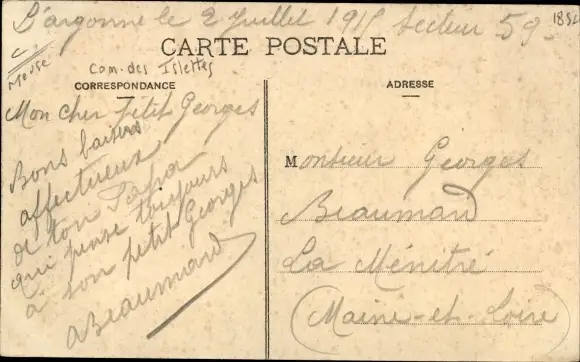 D'argonne le 2 Juillet 1915 Secteur 59
1852
C.
Meuse
CARTE POSTALE
Com. des Islettes
CORRESPONDANCE
ADRESSE
Mon cher Petit Georges
Bons baisers
affectueux
de ton Papa
qui pense toujours
à son petit Georges
Beaumard
Monsieur Georges
Beaumard
La Ménitré
(Maine-et-Loire)